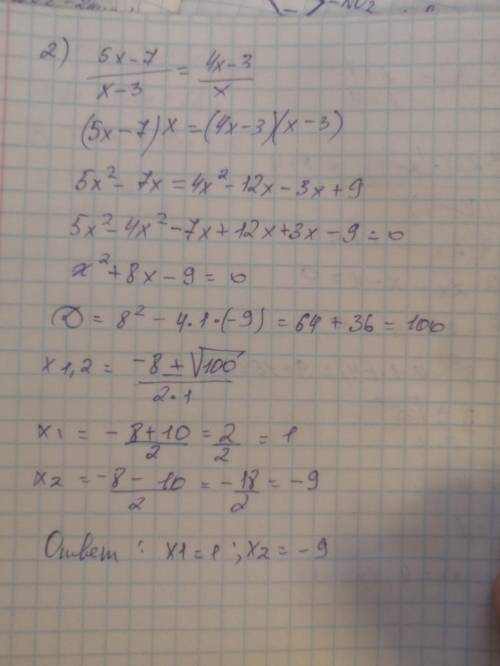 2) (5x-7)/(x-3) = (4x-3)/x
(5x-7)x = (4x-3)(x-3)
5x² - 7x = 4x² - 12x - 3x + 9
5x² - 4x² - 7x + 12x + 3x - 9 = 0
x² + 8x - 9 = 0
D = 8² - 4·1·(-9) = 64 + 36 = 100
x1,2 = (-8 ± √100)/(2·1)
x1 = -(8+10)/2 = 2/2 = 1
x2 = (-8-10)/2 = -18/2 = -9
Ответ: x1 = 1; x2 = -9